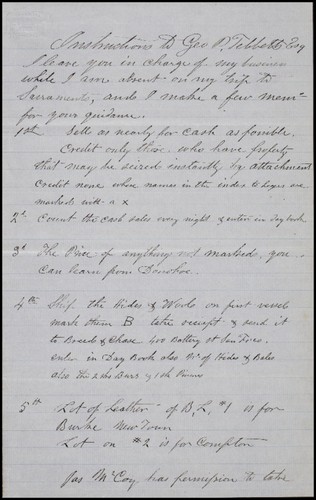 Instructions to Geo P. Tebbetts, Esq
I leave you in charge of my business
while I am absent on my trip to
Sacramento, and I make a few mems
for your guidance.
1st Sell as nearly for cash as possible.
Credit only those who have property
that may be seized instantly by attachment
Credit none whose names in the index to Legers are
marked with a x
2d Count the cash sales every night & enter in Day book
3d The Price of anything not marked, you
Can learn from Donohoe.
4th Ship the Hides & Wools on first vessel
mark them B take receipt & send it
to Breed & Chase 400 Battery st San Fr.co.
Enter in Day Book also No of Hides & Bales
also the 2 sks
5th Lot of Leather of B, L, #1 is for
Burke New Town
Lot on #2 is for Compton
Jas McCoy has permission to take